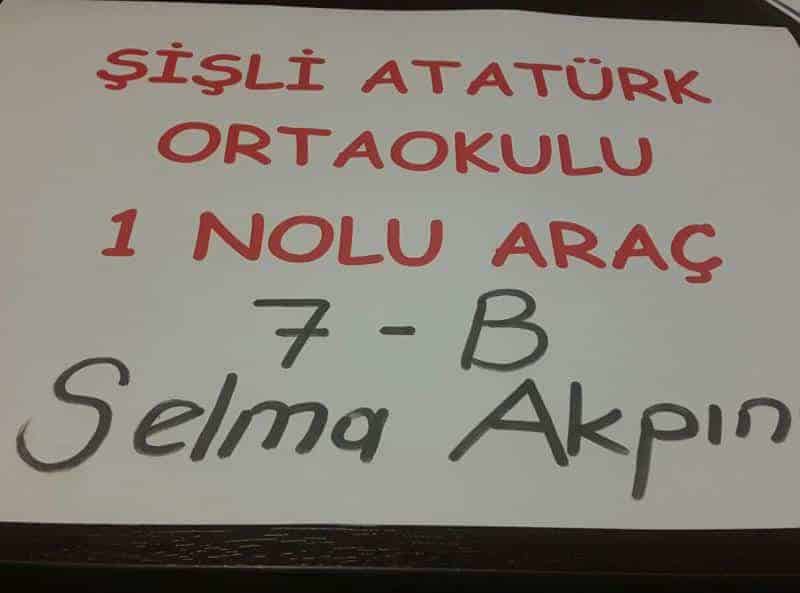 ŞİŞLİ ATATÜRK
ORTAOKULU
1 NOLU ARAÇ
7 - B
Selma Akpın